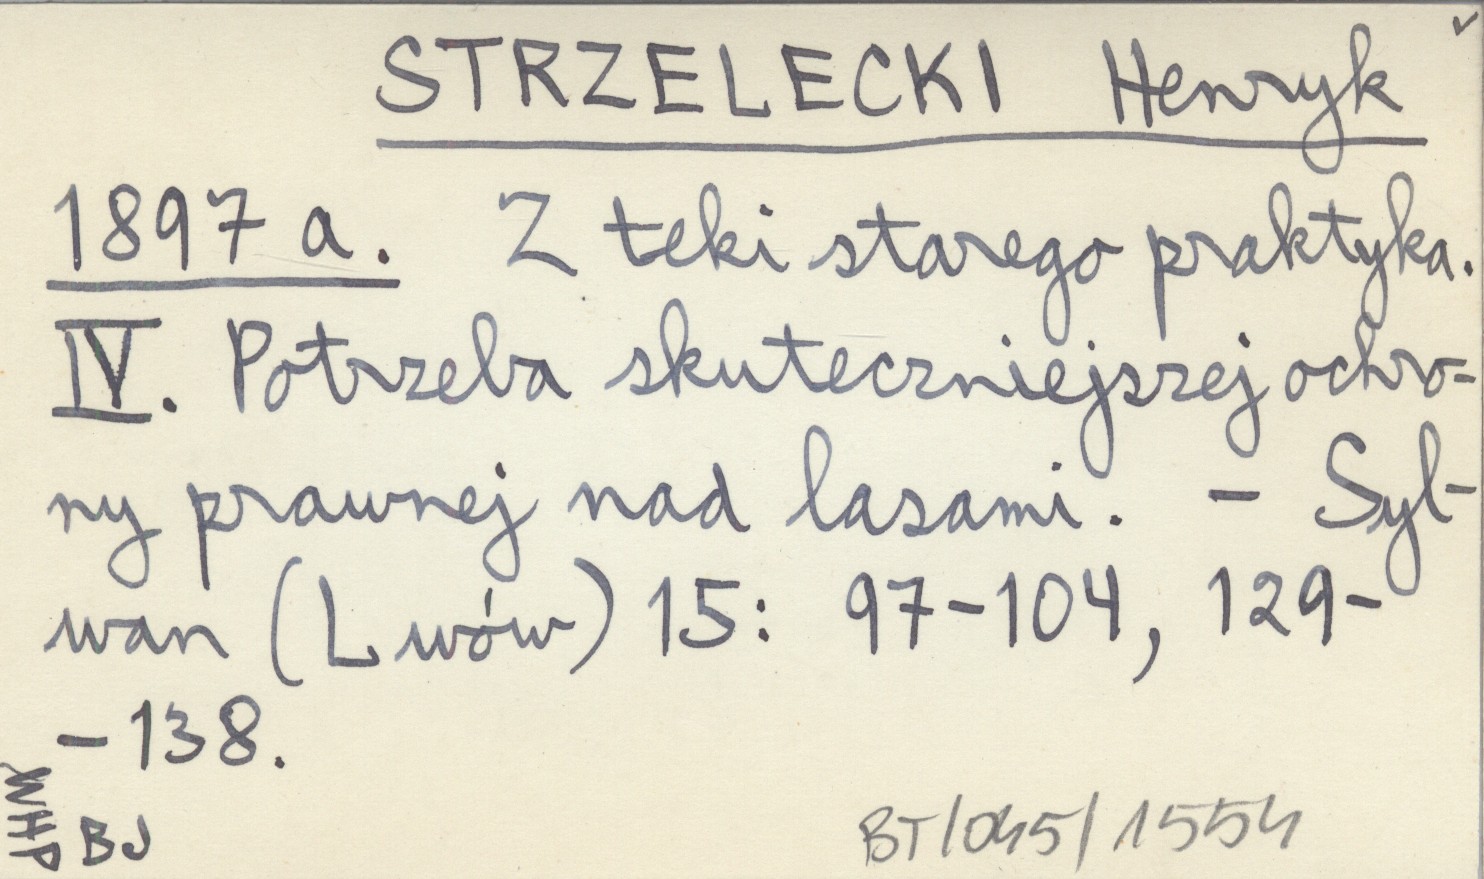 STRZELECKI Henryk
1897 a. Z teki starego praktyka.
IV. Potrzeba skuteczniejszej ochro-
ny prawnej nad lasami. - Syl-
wan (Lwów) 15: 97-104, 129-
-138.
BJ
BT/045/1554